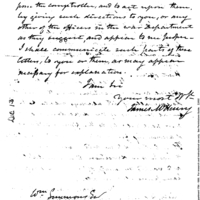 from the comptroller, and to act upon them,
by giving such directions to you, or any
other of the officers in the war Department
as they suggest and appear to me proper.
I shall communicate such parts of these
letters, to you or them as may appear
necessary for explanation.
I am Sir
your most ob St
James McHenry
Wm Simmons Esq